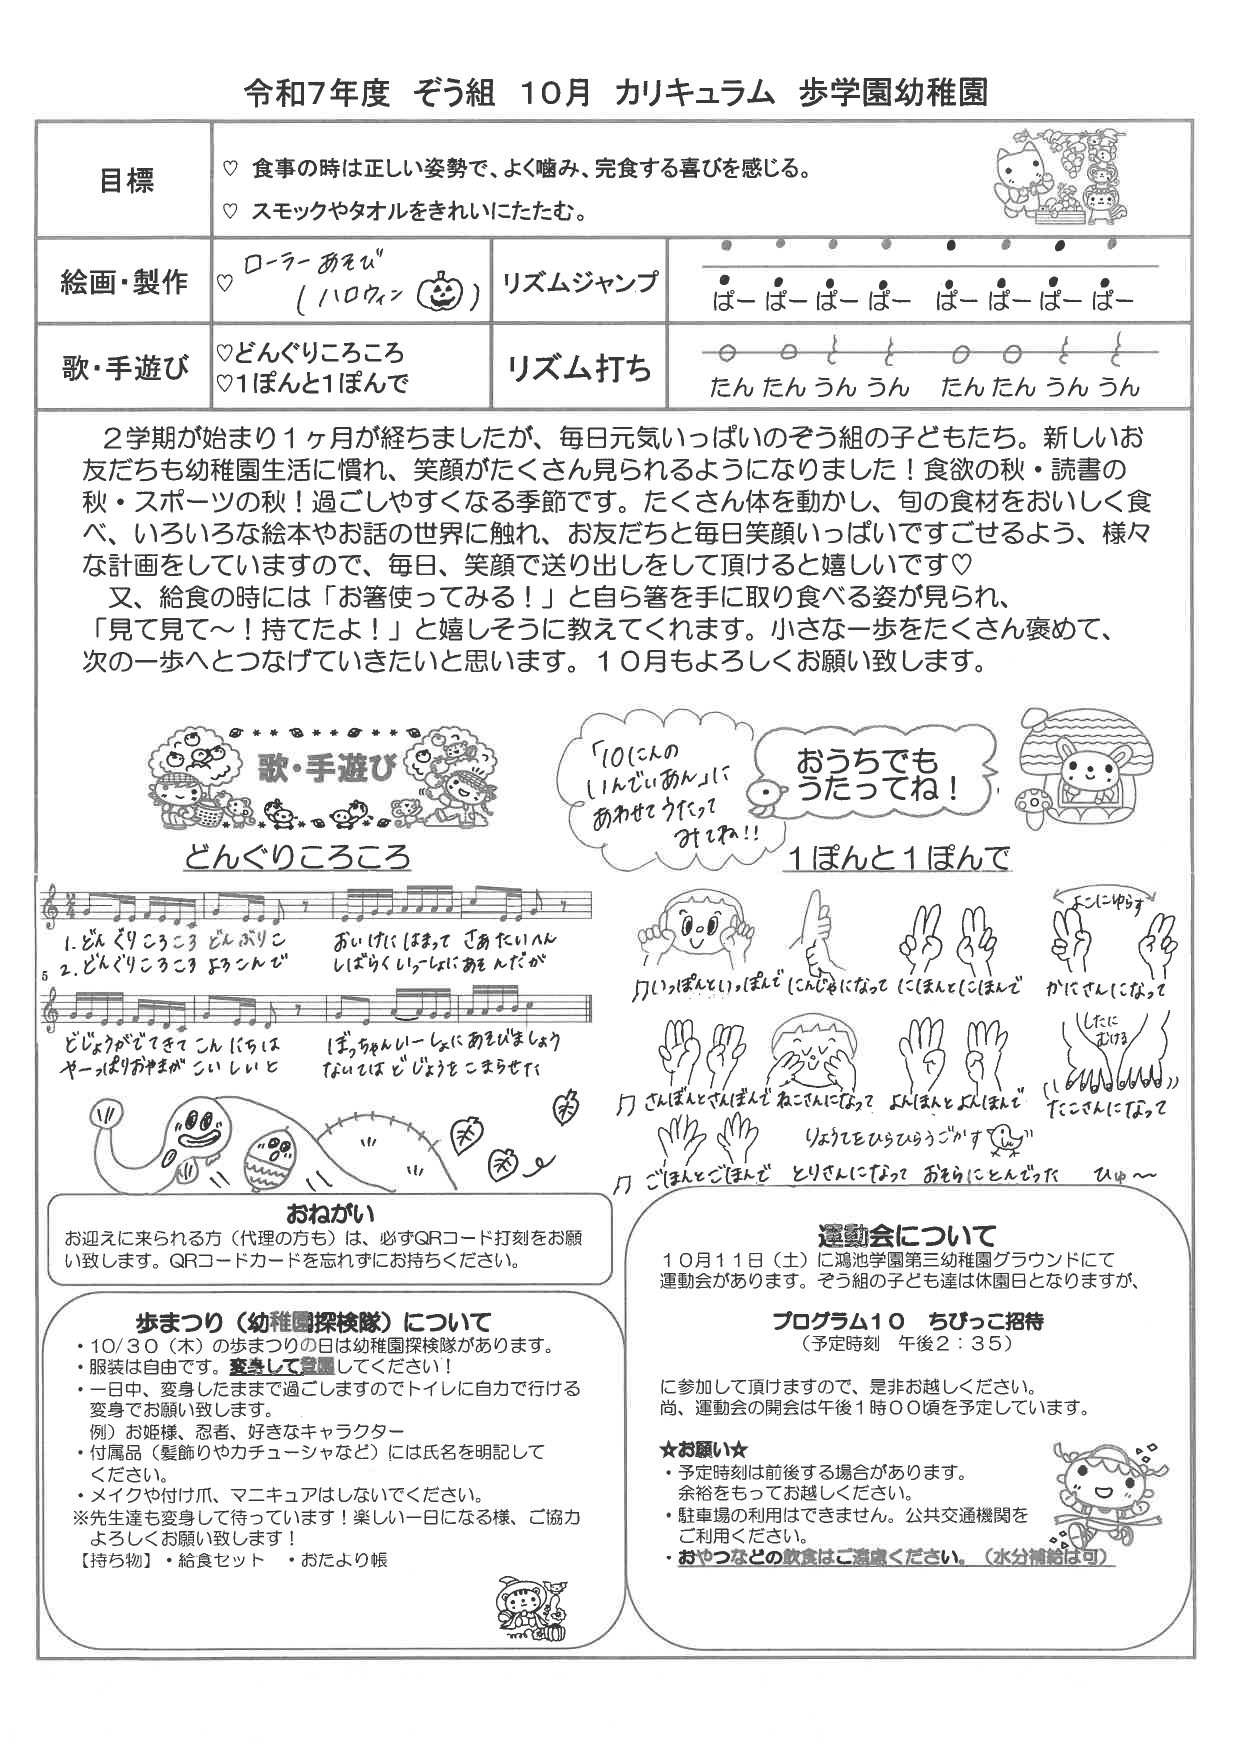 令和7年度　ぞう組　10月　カリキュラム　歩学園幼稚園
目標
♡ 食事の時は正しい姿勢で、よく噛み、完食する喜びを感じる。
♡ スモックやタオルをきれいにたたむ。
絵画・製作
♡ ローラーあそび
(ハロウィン )
リズムジャンプ
ぱー ぱー ぱー ぱー　ぱー ぱー ぱー ぱー
歌・手遊び
♡どんぐりころころ
♡1ぽんと1ぽんで
リズム打ち
たん たん うん うん　たん たん うん うん
２学期が始まり１ヶ月が経ちましたが、毎日元気いっぱいのぞう組の子どもたち。新しいお
友だちも幼稚園生活に慣れ、笑顔がたくさん見られるようになりました！食欲の秋・読書の
秋・スポーツの秋！過ごしやすくなる季節です。たくさん体を動かし、旬の食材をおいしく食
べ、いろいろな絵本やお話の世界に触れ、お友だちと毎日笑顔いっぱいですごせるよう、様々
な計画をしていますので、毎日、笑顔で送り出しをして頂けると嬉しいです♡
又、給食の時には「お箸使ってみる！」と自ら箸を手に取り食べる姿が見られ、
「見て見て～！持てたよ！」と嬉しそうに教えてくれます。小さな一歩をたくさん褒めて、
次の一歩へとつなげていきたいと思います。１０月もよろしくお願い致します。
歌・手遊び
どんぐりころころ
1.どんぐりころころ どんぶりこ　おいけに はまって さあたいへん
2.どんぐりころころ よろこんで　しばらくいっしょに あそんだが
5
どじょうがでてきて こんにちは　ぼっちゃんいーしょに あそびましょう
やーっぱりおやまが こいしいと　ないては どじょうを こまらせた
「10にんの
いんでぃあん」に
あわせてうたって
みてね!!
おうちでも
うたってね！
１ぽんと１ぽんで
よこにゆらす
♫いっぽんといっぽんで にんじゃになって にほんとにほんで かにさんになって
したに
むける
♫ さんぼんとさんぼんで ねこさんになって よんほんとよんほんで たこさんになって
りょうてをひらひらうごかす
♫ ごほんとごほんで とりさんになって おそらにとんでった ひゅ～
おねがい
お迎えに来られる方（代理の方も）は、必ずQRコード打刻をお願
い致します。QRコードカードを忘れずにお持ちください。
歩まつり（幼稚園探検隊）について
・10/３０（木）の歩まつりの日は幼稚園探検隊があります。
・服装は自由です。変身して登園してください！
・一日中、変身したままで過ごしますのでトイレに自力で行ける
変身でお願い致します。
例）お姫様、忍者、好きなキャラクター
・付属品（髪飾りやカチューシャなど）には氏名を明記して
ください。
・メイクや付け爪、マニキュアはしないでください。
※先生達も変身して待っています！楽しい一日になる様、ご協力
よろしくお願い致します！
【持ち物】・給食セット　・おたより帳
運動会について
１０月１１日（土）に鴻池学園第三幼稚園グラウンドにて
運動会があります。ぞう組の子ども達は休園日となりますが、
プログラム１０　ちびっこ招待
（予定時刻　午後２：３５）
に参加して頂けますので、是非お越しください。
尚、運動会の開会は午後１時００頃を予定しています。
★お願い★
・予定時刻は前後する場合があります。
余裕をもってお越しください。
・駐車場の利用はできません。公共交通機関を
ご利用ください。
・おやつなどの飲食はご遠慮ください。（水分補給は可）